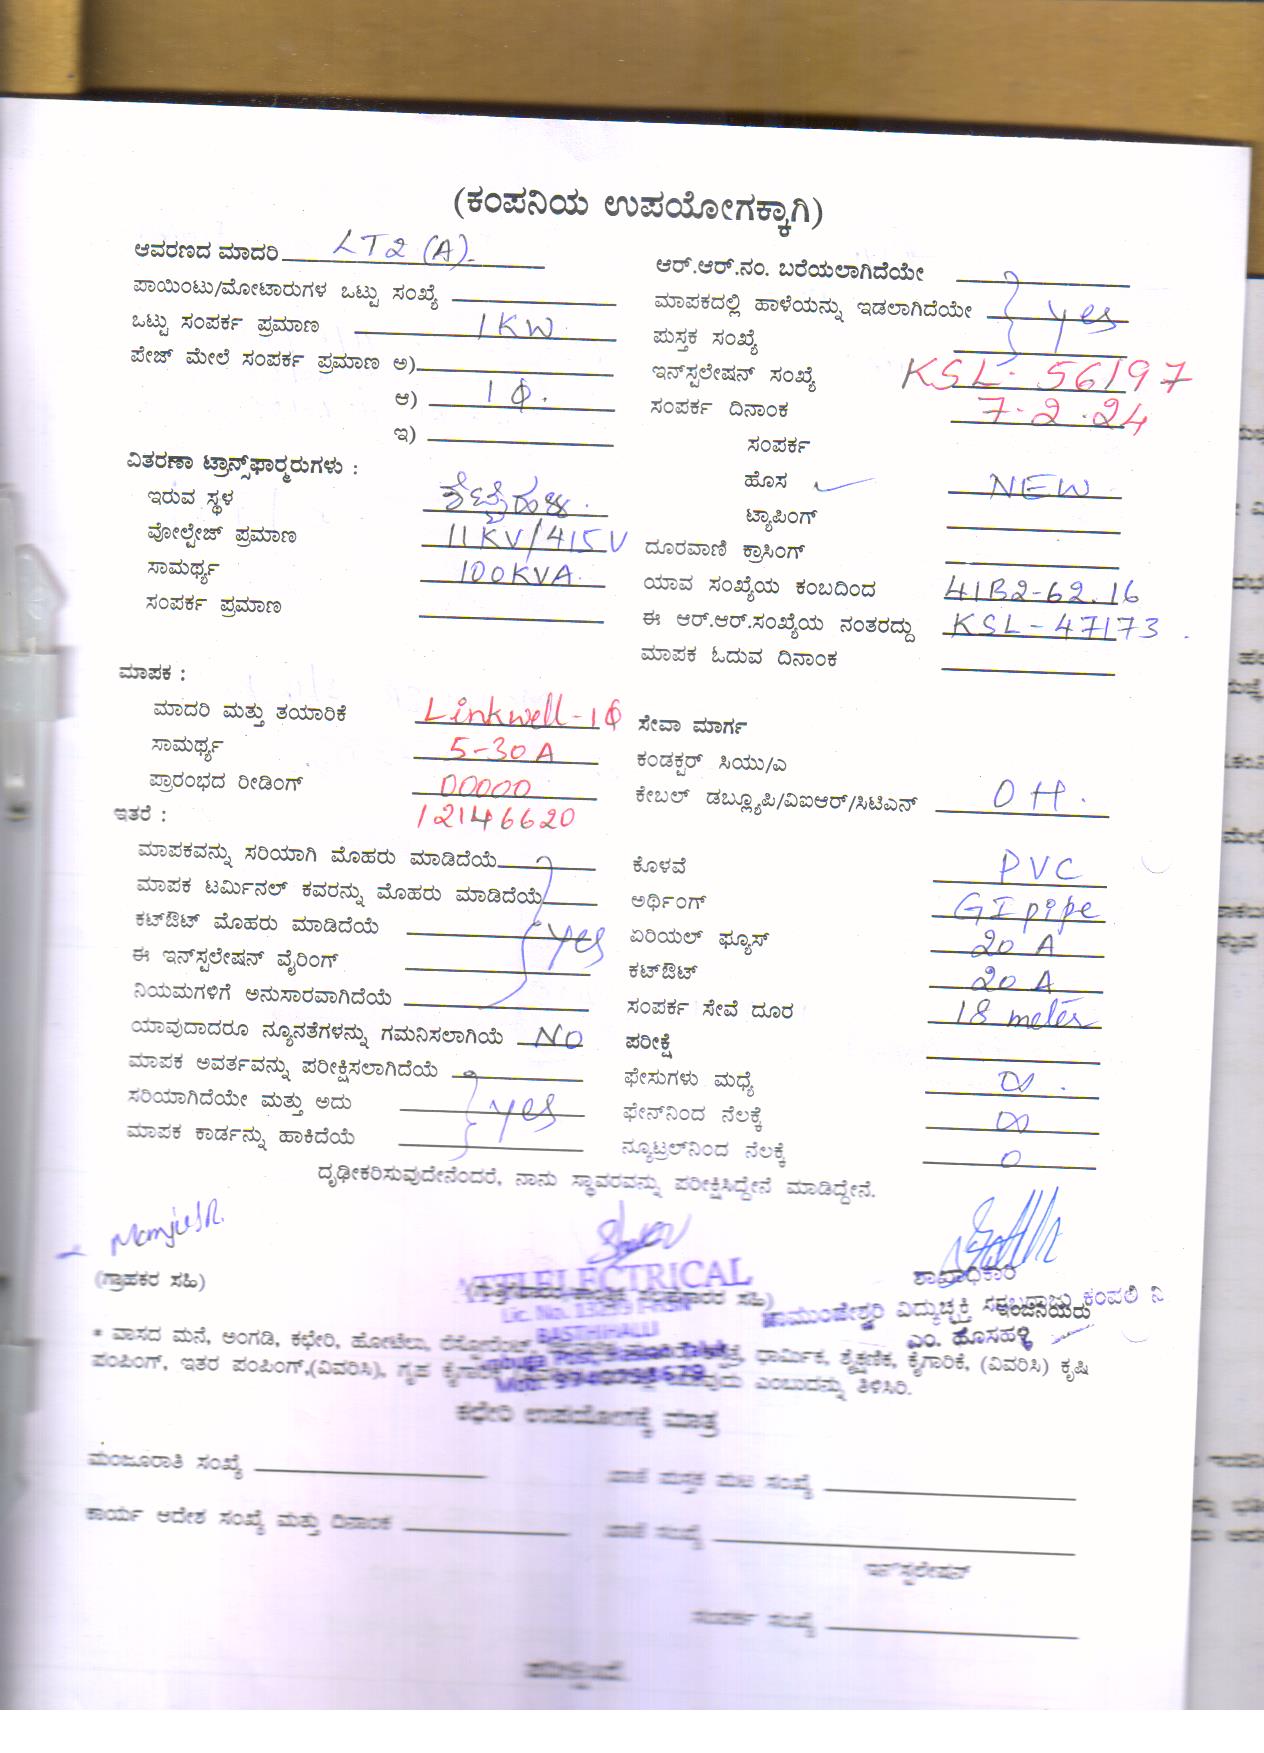 (ಕಂಪನಿಯ ಉಪಯೋಗಕ್ಕಾಗಿ)
ಆವರಣದ ಮಾದರಿ LT2 (A).
ಪಾಯಿಂಟು/ಮೋಟಾರುಗಳ ಒಟ್ಟು ಸಂಖ್ಯೆ
ಒಟ್ಟು ಸಂಪರ್ಕ ಪ್ರಮಾಣ 1KW.
ಪೇಜ್ ಮೇಲೆ ಸಂಪರ್ಕ ಪ್ರಮಾಣ ಅ)
ಆ) 1 Φ.
ಇ)
ವಿತರಣಾ ಟ್ರಾನ್ಸ್‌ಫಾರ್ಮರುಗಳು :
ಇರುವ ಸ್ಥಳ
ವೋಲ್ಟೇಜ್ ಪ್ರಮಾಣ 11KV/415V
ಸಾಮರ್ಥ್ಯ 100KVA.
ಸಂಪರ್ಕ ಪ್ರಮಾಣ
ಮಾಪಕ :
ಮಾದರಿ ಮತ್ತು ತಯಾರಿಕೆ Linkwell-1Φ
ಸಾಮರ್ಥ್ಯ 5-30A
ಪ್ರಾರಂಭದ ರೀಡಿಂಗ್ 00000
ಇತರೆ : 12146620
ಮಾಪಕವನ್ನು ಸರಿಯಾಗಿ ಮೊಹರು ಮಾಡಿದೆಯೆ
ಮಾಪಕ ಟರ್ಮಿನಲ್ ಕವರನ್ನು ಮೊಹರು ಮಾಡಿದೆಯೆ
ಕಟ್‌ಔಟ್ ಮೊಹರು ಮಾಡಿದೆಯೆ yes
ಈ ಇನ್‌ಸ್ಟಲೇಷನ್ ವೈರಿಂಗ್
ನಿಯಮಗಳಿಗೆ ಅನುಸಾರವಾಗಿದೆಯೆ
ಯಾವುದಾದರೂ ನ್ಯೂನತೆಗಳನ್ನು ಗಮನಿಸಲಾಗಿಯೆ NO
ಮಾಪಕ ಅವರ್ತವನ್ನು ಪರೀಕ್ಷಿಸಲಾಗಿದೆಯೆ
ಸರಿಯಾಗಿದೆಯೇ ಮತ್ತು ಅದು yes
ಮಾಪಕ ಕಾರ್ಡನ್ನು ಹಾಕಿದೆಯೆ
ಆರ್.ಆರ್.ನಂ. ಬರೆಯಲಾಗಿದೆಯೇ
ಮಾಪಕದಲ್ಲಿ ಹಾಳೆಯನ್ನು ಇಡಲಾಗಿದೆಯೇ yes
ಪುಸ್ತಕ ಸಂಖ್ಯೆ
ಇನ್‌ಸ್ಟಲೇಷನ್ ಸಂಖ್ಯೆ KSL- 56197
ಸಂಪರ್ಕ ದಿನಾಂಕ 7.2.24
ಸಂಪರ್ಕ
ಹೊಸ NEW
ಟ್ಯಾಪಿಂಗ್
ದೂರವಾಣಿ ಕ್ರಾಸಿಂಗ್
ಯಾವ ಸಂಖ್ಯೆಯ ಕಂಬದಿಂದ 41B2-62.16
ಈ ಆರ್.ಆರ್.ಸಂಖ್ಯೆಯ ನಂತರದ್ದು KSL-47173.
ಮಾಪಕ ಓದುವ ದಿನಾಂಕ
ಸೇವಾ ಮಾರ್ಗ
ಕಂಡಕ್ಟರ್ ಸಿಯು/ಎ
ಕೇಬಲ್ ಡಬ್ಲ್ಯೂಪಿ/ವಿಐಆರ್/ಸಿಟಿಎಸ್ OH.
ಕೊಳವೆ PVC
ಅರ್ಥಿಂಗ್ GI pipe
ಏರಿಯಲ್ ಫ್ಯೂಸ್ 20 A
ಕಟ್‌ಔಟ್ 20 A
ಸಂಪರ್ಕ ಸೇವೆ ದೂರ 18 meter
ಪರೀಕ್ಷೆ
ಫೇಸುಗಳು ಮಧ್ಯೆ ∞.
ಫೇಸ್‌ನಿಂದ ನೆಲಕ್ಕೆ ∞
ನ್ಯೂಟ್ರಲ್‌ನಿಂದ ನೆಲಕ್ಕೆ 0
ದೃಢೀಕರಿಸುವುದೇನೆಂದರೆ, ನಾನು ಸ್ಥಾವರವನ್ನು ಪರೀಕ್ಷಿಸಿದ್ದೇನೆ ಮಾಡಿದ್ದೇನೆ.
(ಗ್ರಾಹಕರ ಸಹಿ)
ELECTRICAL
BASTHIHALLI
ಶಾಖಾಧಿಕಾರಿ
ಚಾಮುಂಡೇಶ್ವರಿ ವಿದ್ಯುಚ್ಛಕ್ತಿ ಸರಬರಾಜು ಕಂಪನಿ ನಿ
ಇಂಜಿನಿಯರು
ಎಂ. ಹೊಸಹಳ್ಳಿ
* ವಾಸದ ಮನೆ, ಅಂಗಡಿ, ಕಛೇರಿ, ಹೋಟೆಲು, ಧಾರ್ಮಿಕ, ಶೈಕ್ಷಣಿಕ, ಕೈಗಾರಿಕೆ, (ವಿವರಿಸಿ) ಕೃಷಿ
ಪಂಪಿಂಗ್, ಇತರ ಪಂಪಿಂಗ್,(ವಿವರಿಸಿ), ಗೃಹ ಎಂಬುದನ್ನು ತಿಳಿಸಿರಿ.
ಕಛೇರಿ ಉಪಯೋಗಕ್ಕೆ ಮಾತ್ರ
ಮಂಜೂರಾತಿ ಸಂಖ್ಯೆ
ಕಾರ್ಯ ಆದೇಶ ಸಂಖ್ಯೆ ಮತ್ತು ದಿನಾಂಕ
ಇನ್‌ಸ್ಟಲೇಷನ್
ಸಂಪರ್ಕ ಸಂಖ್ಯೆ